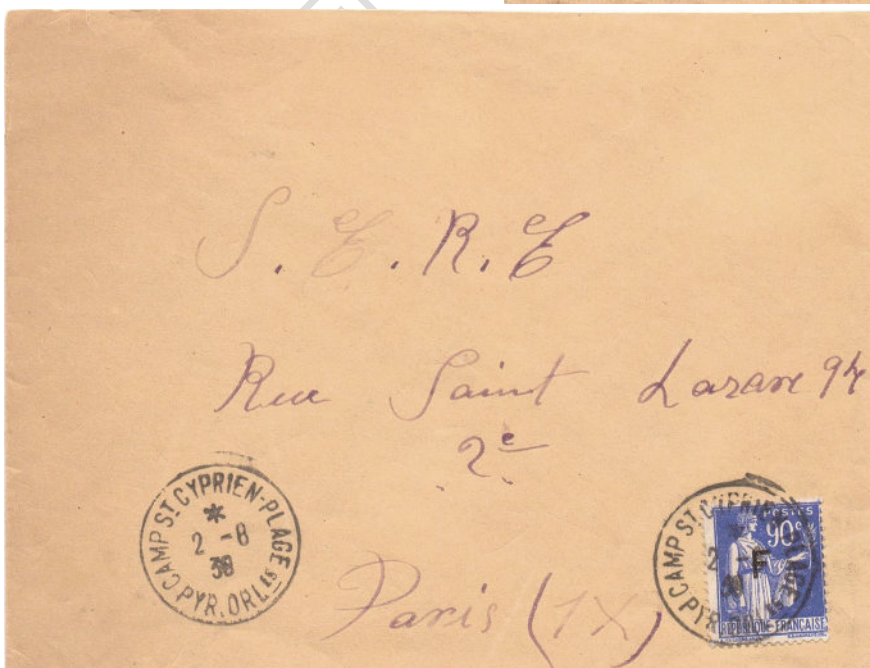 S. E. R. E
Rue Saint Lazare 94
2e
Paris (IX)
CAMP ST CYPRIEN-PLAGE
*
2 -8
39
PYR. ORLES
CAMP ST CYPRIEN-PLAGE
PYR. ORLES
POSTES
90c
F
REPUBLIQUE-FRANCAISE